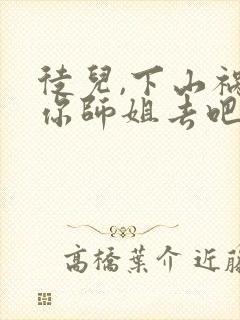 徒兒,下山禍
你師姐去吧
高橋葉介 近藤